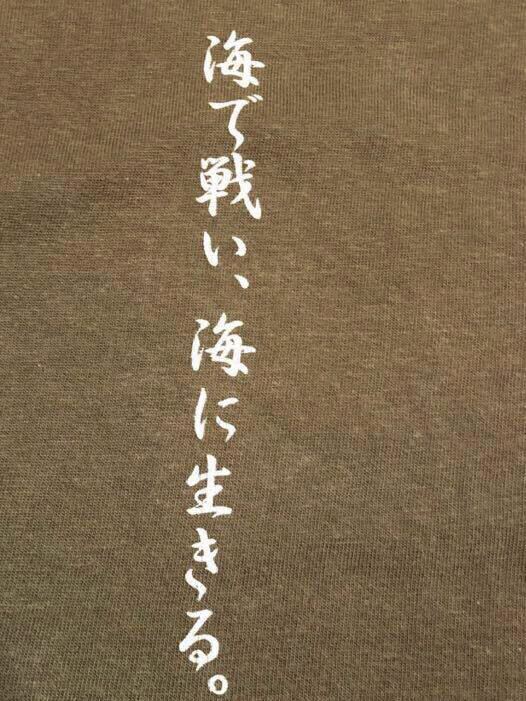 海で戦い、海に生きる。